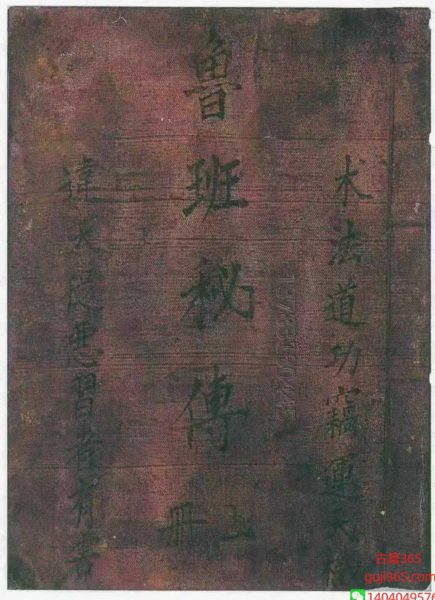 术法道功竊運天
魯班秘傳
上冊
違天隱患習者有害
古籍365
guji365.com
1404049576